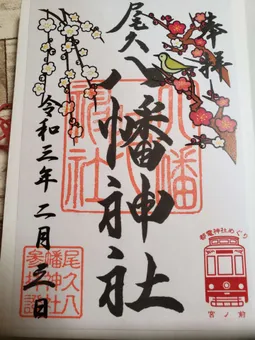 奉拝
尾久八幡神社
令和三年二月三日
八幡
神社
尾久八
幡神社
都電神社めぐり
宮ノ前